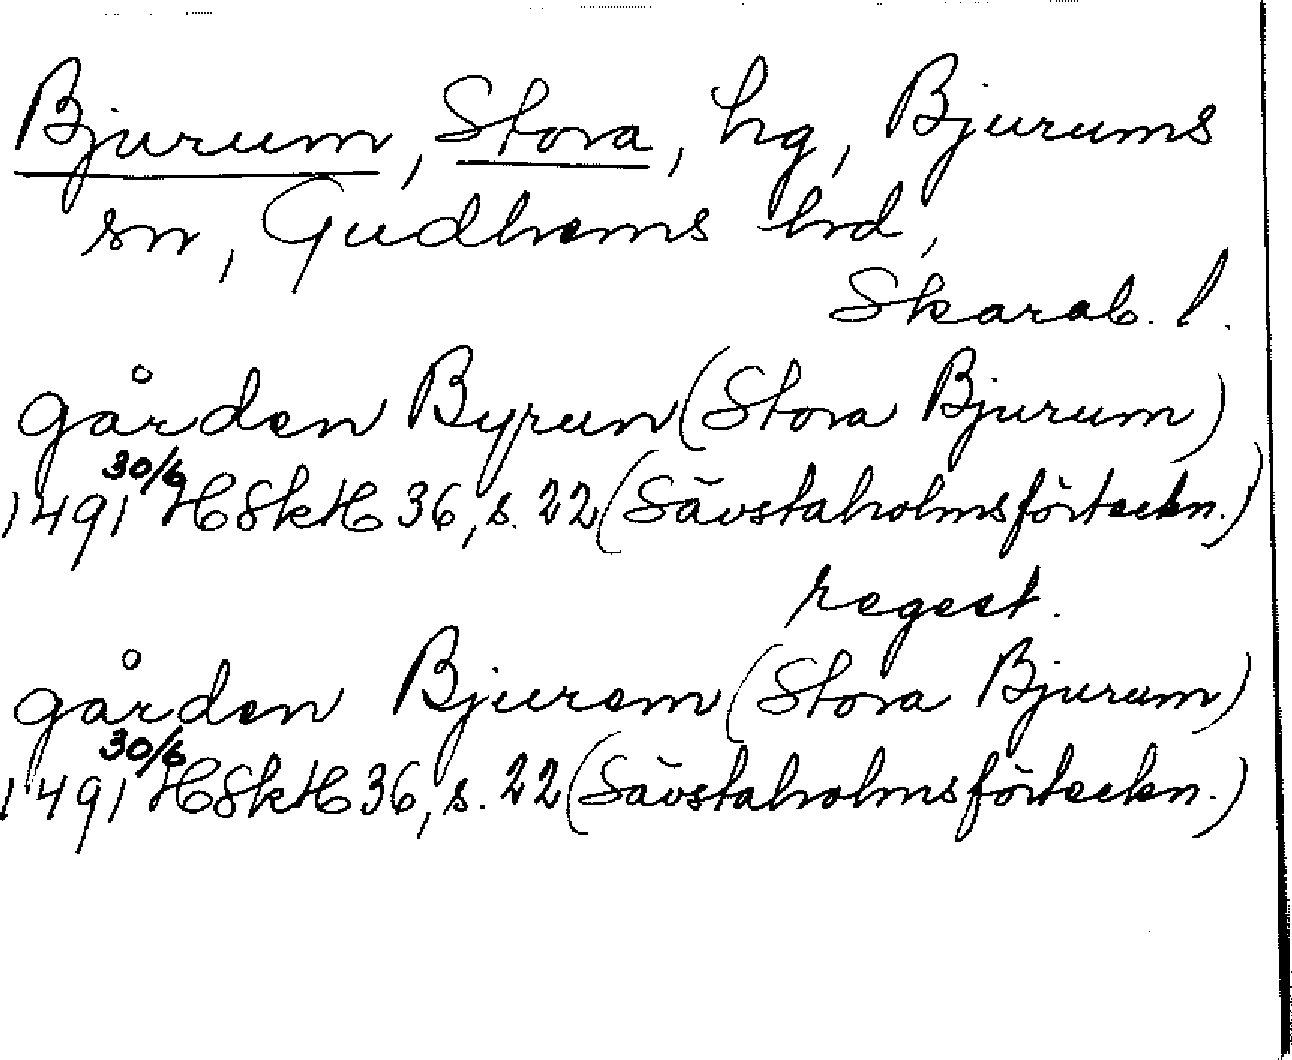 Bjurum, Stora, hg, Bjurums
sn, Gudhems hrd,
Skarab. l.
gården Byrun (Stora Bjurum)
1491 30/6 HSkH 36, s. 22 (Sävstaholmsförteckn.)
regest.
gården Bjurem (Stora Bjurum)
1491 30/6 HSkH 36, s. 22 (Sävstaholmsförteckn.)